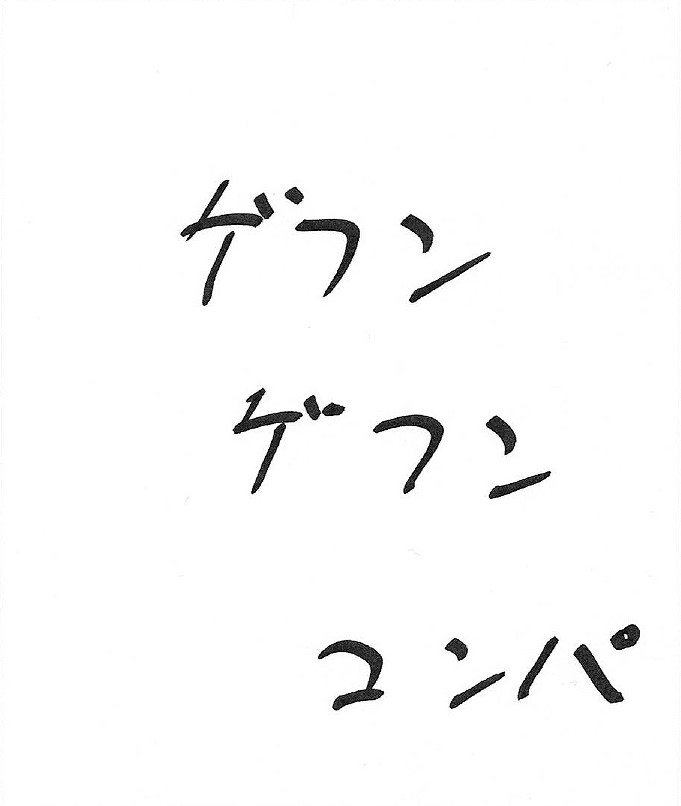 ゲフン
ゲフン
コンパ